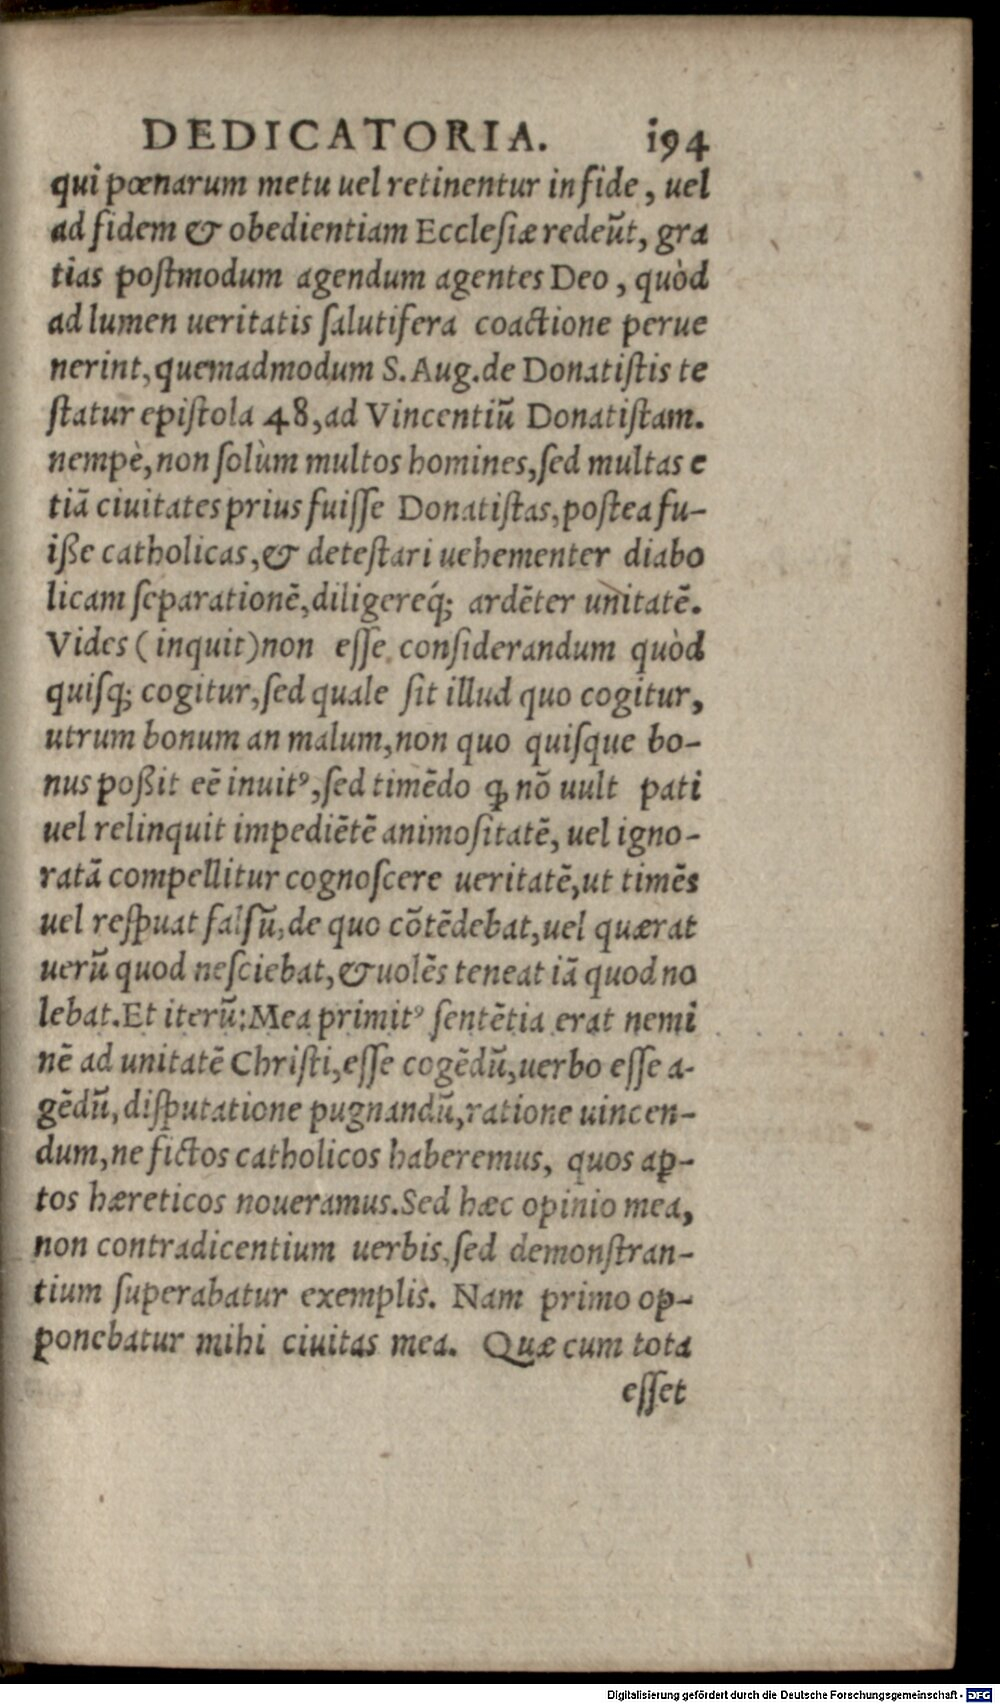 DEDICATORIA. 194
qui pœnarum metu uel retinentur in fide, uel
ad fidem & obedientiam Ecclesiæ redeũt, gra
tias postmodum agendum agentes Deo, quòd
ad lumen ueritatis salutifera coactione perue
nerint, quemadmodum S. Aug. de Donatistis te
statur epistola 48, ad Vincentiũ Donatistam.
nempè, non solùm multos homines, sed multas e
tiã ciuitates prius fuisse Donatistas, postea fu-
iße catholicas, & detestari uehementer diabo
licam separationẽ, diligereq́; ardẽter unitatẽ.
Vides (inquit) non esse considerandum quòd
quisq; cogitur, sed quale sit illud quo cogitur,
utrum bonum an malum, non quo quisque bo-
nus poßit eẽ inuitꝰ, sed timẽdo ꝙ nõ uult pati
uel relinquit impediẽtẽ animositatẽ, uel igno-
ratã compellitur cognoscere ueritatẽ, ut timẽs
uel respuat falsũ, de quo cõtẽdebat, uel quærat
uerũ quod nesciebat, & uolẽs teneat iã quod no
lebat. Et iterũ: Mea primitꝰ sentẽtia erat nemi
nẽ ad unitatẽ Christi, esse cogẽdũ, uerbo esse a-
gẽdũ, disputatione pugnandũ, ratione uincen-
dum, ne fictos catholicos haberemus, quos aꝑ-
tos hæreticos noueramus. Sed hæc opinio mea,
non contradicentium uerbis, sed demonstran-
tium superabatur exemplis. Nam primo op-
ponebatur mihi ciuitas mea. Quæ cum tota
esset
Digitalisierung gefördert durch die Deutsche Forschungsgemeinschaft - DFG